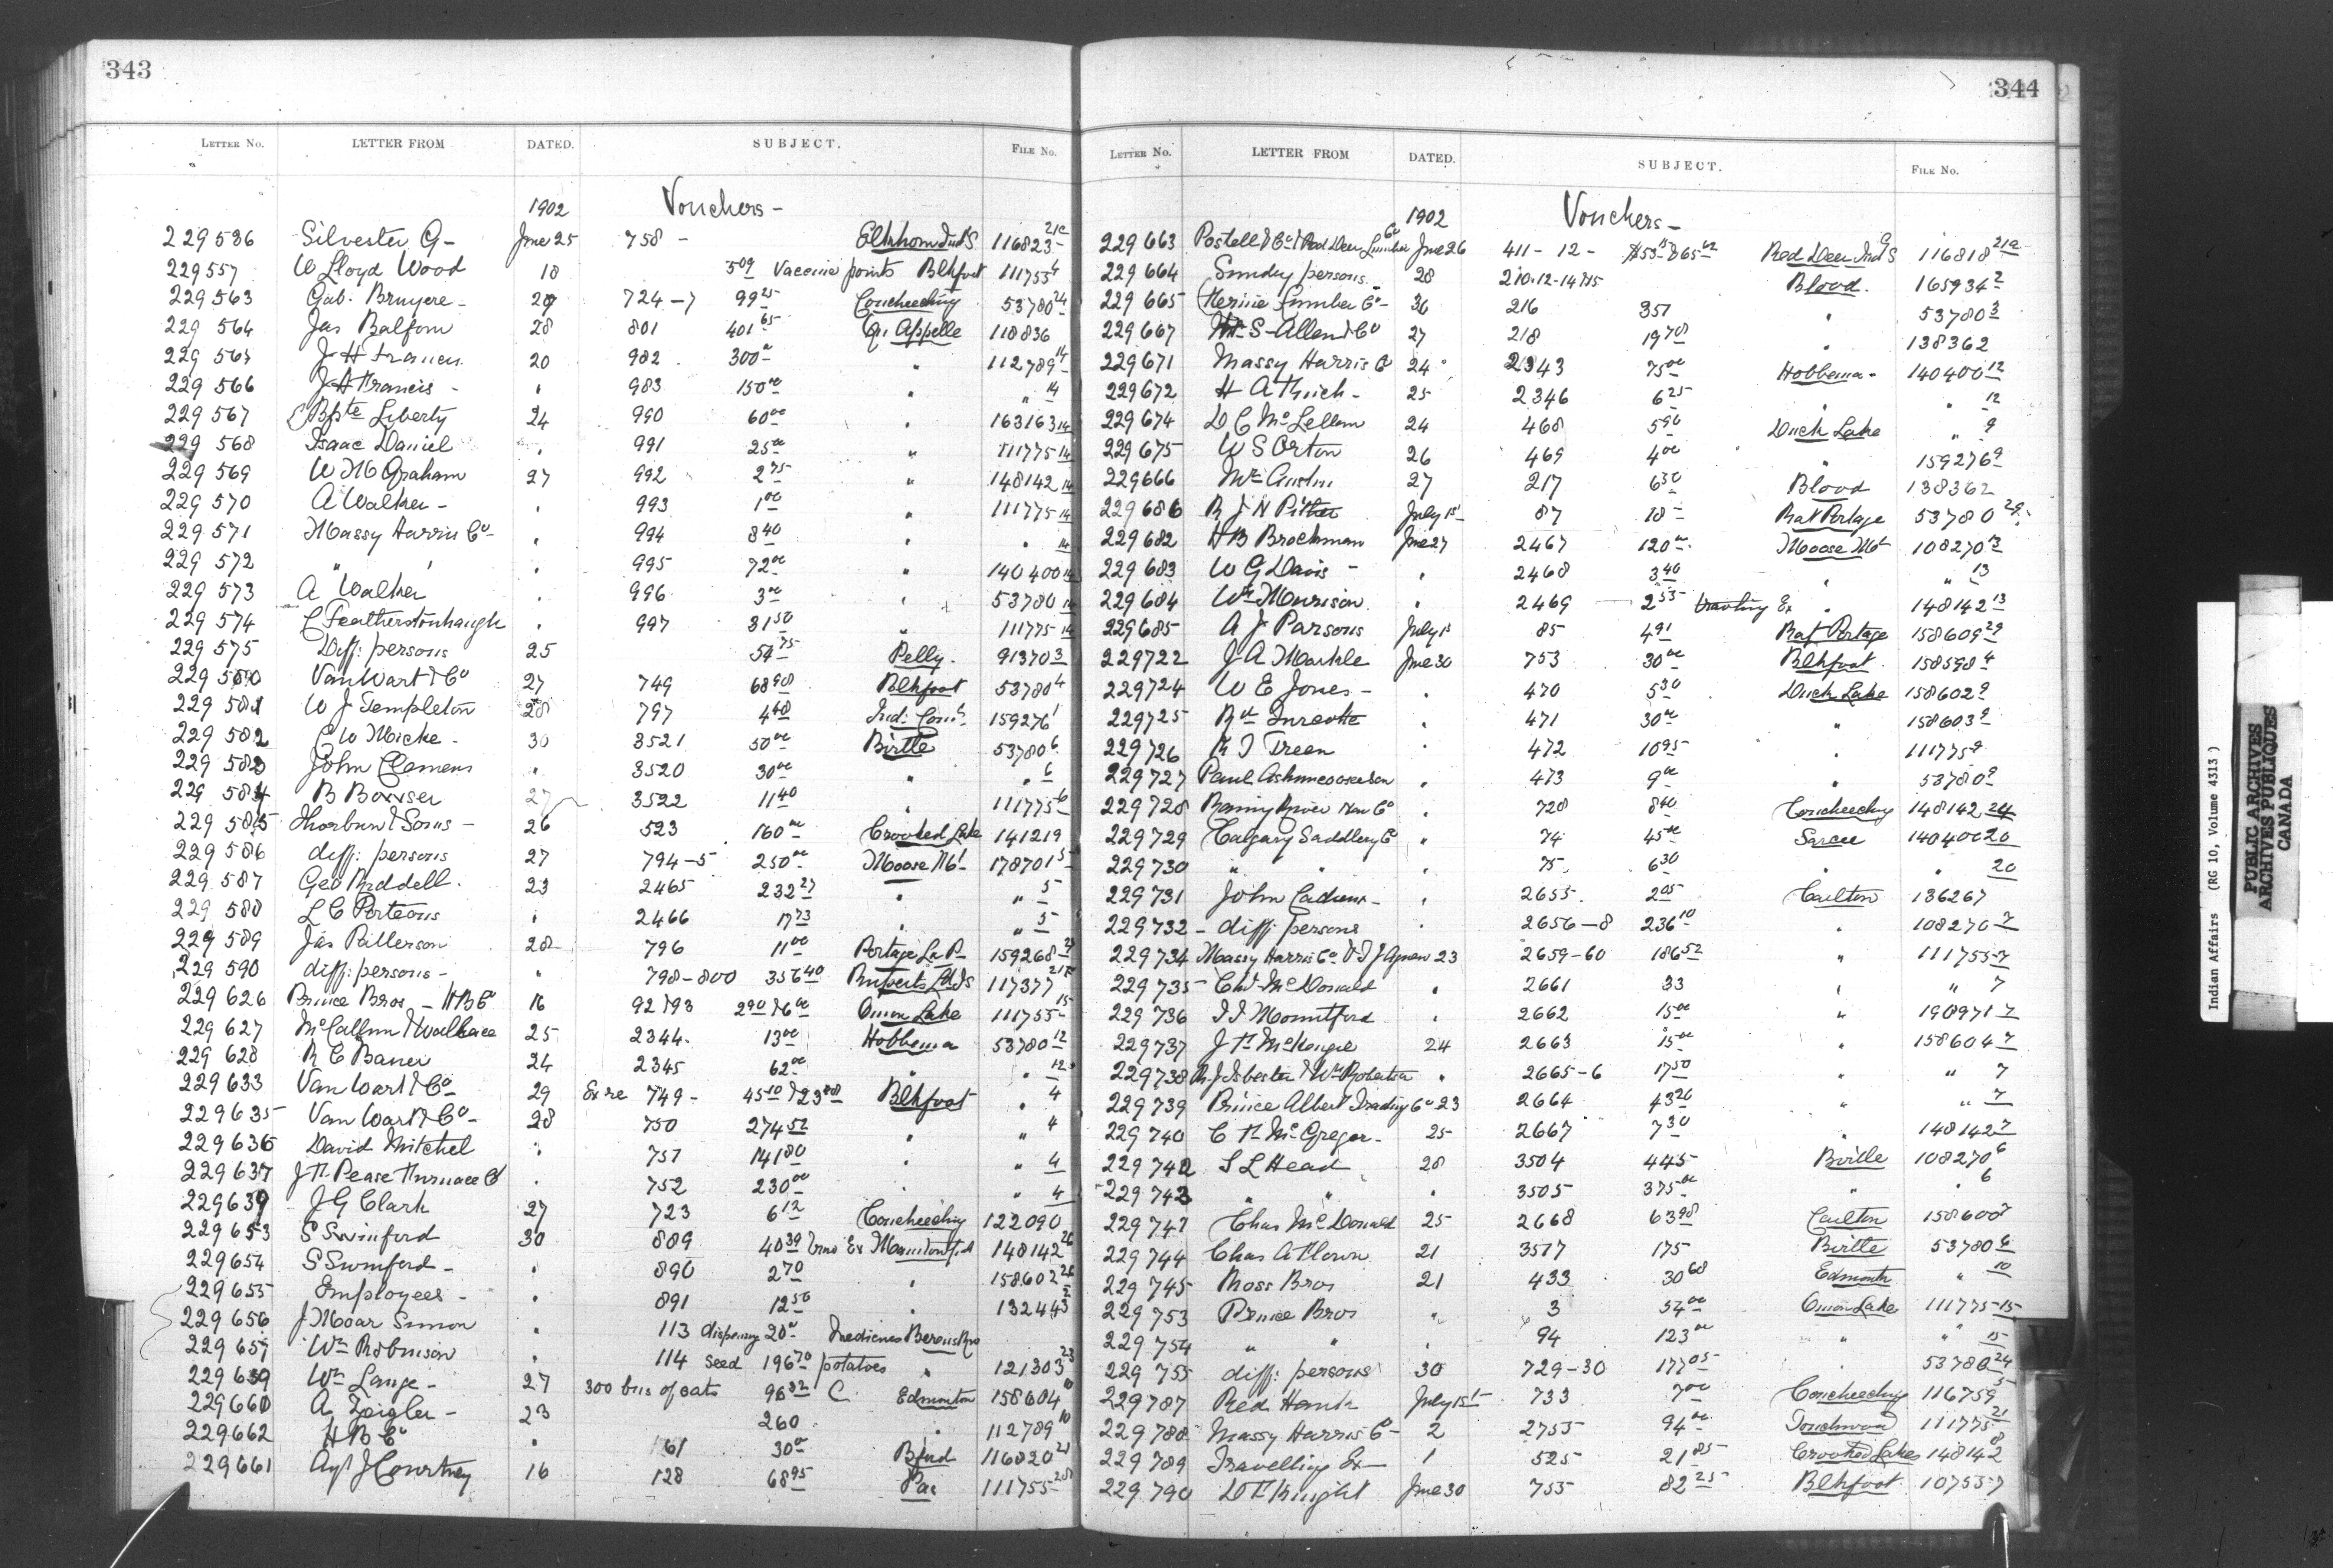 343
LETTER NO. LETTER FROM DATED. SUBJECT. FILE NO.
1902 Vouchers -
229536 Silvester G - June 25 758 - Elkhorn Ind S. 116823 21a
229557 W Lloyd Wood 18 5 09 Vaccine points Blkfoot 111755 4
229563 Gab. Bruyere - 27 724-7 99 25 Coucheeching 53780 24
229564 Jas Balfour 28 801 401 65 Qu Appelle 118836
229565 J H Francis 20 982 300 00 " 112789 14
229566 J H Francis - " 983 150 00 " " 14
229567 Bpte Liberty 24 990 60 00 " 163163 14
229568 Isaac Daniel " 991 25 00 " 111775 14
229569 W M Graham 27 992 2 75 " 148142 14
229570 A Walker - " 993 1 00 " 111775 14
229571 Massy Harris Co - " 994 8 40 " " 14
229572 " " " 995 72 00 " 140400 14
229573 A Walker " 996 3 00 " 53780 14
229574 C Featherstonhaugh " 997 31 50 " 111775 14
229575 Diff: persons 25 54 75 Pelly. 91370 3
229580 Van Wart & Co 27 749 68 98 Blkfoot 53780 4
229581 W J Templeton 28 797 4 48 Ind: Comr. 159276 1
229582 C W Micke - 30 3521 50 00 Birtle 53780 6
229583 John Clemens " 3520 30 00 " " 6
229584 B Bowser 27 3522 11 40 " 111775 6
229585 Thorburn & Sons - 26 523 160 00 Crooked Lake 141219
229586 diff: persons 27 794-5 250 00 Moose Mt - 178701 5
229587 Geo Riddell. 23 2465 232 27 " " 5
229588 L C Porteous " 2466 17 73 " " 5
229589 Jas Patterson 28 796 11 00 Portage La P - 159268
229590 diff: persons - " 798-800 356 40 Ruperts Ld Ind S 117377
229626 Prince Bros - H B Co 16 92 & 93 2 90 & 6 00 Onion Lake 111755 15
229627 McCallum & Wallace 25 2344. 13 00 Hobbema 53780 12
229628 24 2345 62 00 " " 12
229633 Van Wart & Co 29 Ex re 749 - 45 10 & 23 88 Blkfoot " 4
229635 Van Wart & Co - 28 750 274 52 " " 4
229636 David Mitchel " 751 141 80 " " 4
229637 J F Pease Furnace Co " 752 230 00 " " 4
229639 J G Clark 27 723 6 12 Coucheeching 122090
229653 S Swinford 30 889 40 39 Trav Ex 148142 26
229654 S Swinford - " 890 2 70 " 158602 26
229655 Employees - " 891 12 50 " 132443
229656 J Moar Simon " 113 dispensing 20 00 Medicines Berens Riv
229657 Wm Robinson " 114 seed 196 70 potatoes " 121303 23
229659 Wm Lange - 27 300 bus of oats 96 32 C Edmonton 158604 10
229660 A Zeigler - 23 260 " 112789 10
229662 H B Co " 161 30 00 Bfrd 116020 21
229661 Agt J Courtney 16 128 68 95 Pas 111755 20
344
LETTER NO. LETTER FROM DATED. SUBJECT. FILE NO.
1902 Vouchers -
229663 Postell & Co & Red Deer Lumber Co June 26 411-12- Red Deer Ind S 116818 21a
229664 Sundry persons 28 210-12-14 & 15 Blood. 165934 2
229665 Lumber Co - 216 351 " 53780 3
229667 S Allen & Co 27 218 19 78 " 138362
229671 Massy Harris Co 24 2343 75 00 Hobbema - 140400 12
229672 25 2346 6 25 " " 12
229674 D C McLellan 24 468 5 90 Duck Lake " 9
229675 W S Orton 26 469 4 00 " 159276 9
229666 Mr Austin 27 217 6 30 Blood 138362
229686 R J N Pither July 1st 87 18 - Rat Portage 53780 29
229682 H B Brockman June 27 2467 120 00 Moose Mt 108270 13
229683 W G Davis - " 2468 3 40 " " 13
229684 Wm Morrison " 2469 - 2 55 travling Ex " 148142 13
229685 A J Parsons July 1st 85 4 91 Rat Portage 158609 29
229722 J A Markle June 30 753 30 00 Blkfoot. 158598 4
229724 W E Jones - " 470 5 30 Duck Lake 158602 9
229725 " 471 30 00 " 158603 9
229726 Treen " 472 10 95 " 111775 9
229727 Paul " 473 9 00 " 53780 9
229728 Rainy River Nav Co " 728 8 40 Coucheeching 148142 24
229729 Calgary Saddlery Co " 74 45 00 Sarcee 140400 20
229730 " " " 75. 6 30 " " 20
229731 John " 2655. 2 05 Carlton 136267
229732 - diff: persons " 2656-8 236 10 " 108270 7
229734 Massy Harris Co & T J Agnew 23 2659-60 186 52 " 111755 7
229735 Chas McDonald " 2661 33 " " 7
229736 Mountford " 2662 15 00 " 190971 7
229737 McKenzie 24 2663 15 00 " 158604 7
229738 R J Isbester & Wm Robertson " 2665-6 17 50 " " 7
229739 Prince Albert Trading Co 23 2664 43 26 " " 7
229740 McGregor - 25 2667 7 30 " 148142 7
229742 S L Head 28 3504 445 Birtle 108270 6
229743 " " " 3505 375 00 " " 6
229747 Chas McDonald 25 2668 63 98 Carlton 158600 7
229744 Chas A 21 3517 175 Birtle 53780 6
229745 Ross Bros 21 433 30 68 Edmonton " 10
229753 Prince Bros " 3 54 00 Onion Lake 111775 15
229754 " " " 94 123 00 " " 15
229755 diff: persons 30 729-30 177 05 " 53780 24
229787 Red Hawk July 15 733 7 00 Coucheeching 116759
229788 Massy Harris Co - 2 2755 94 00 Touchwood 111775 21
229789 Travelling Ex - 1 525 21 85 Crooked Lakes 148142 8
229790 Knight June 30 755 82 25 Blkfoot 107557
Indian Affairs (RG 10, Volume 4313)
PUBLIC ARCHIVES
ARCHIVES PUBLIQUES
CANADA